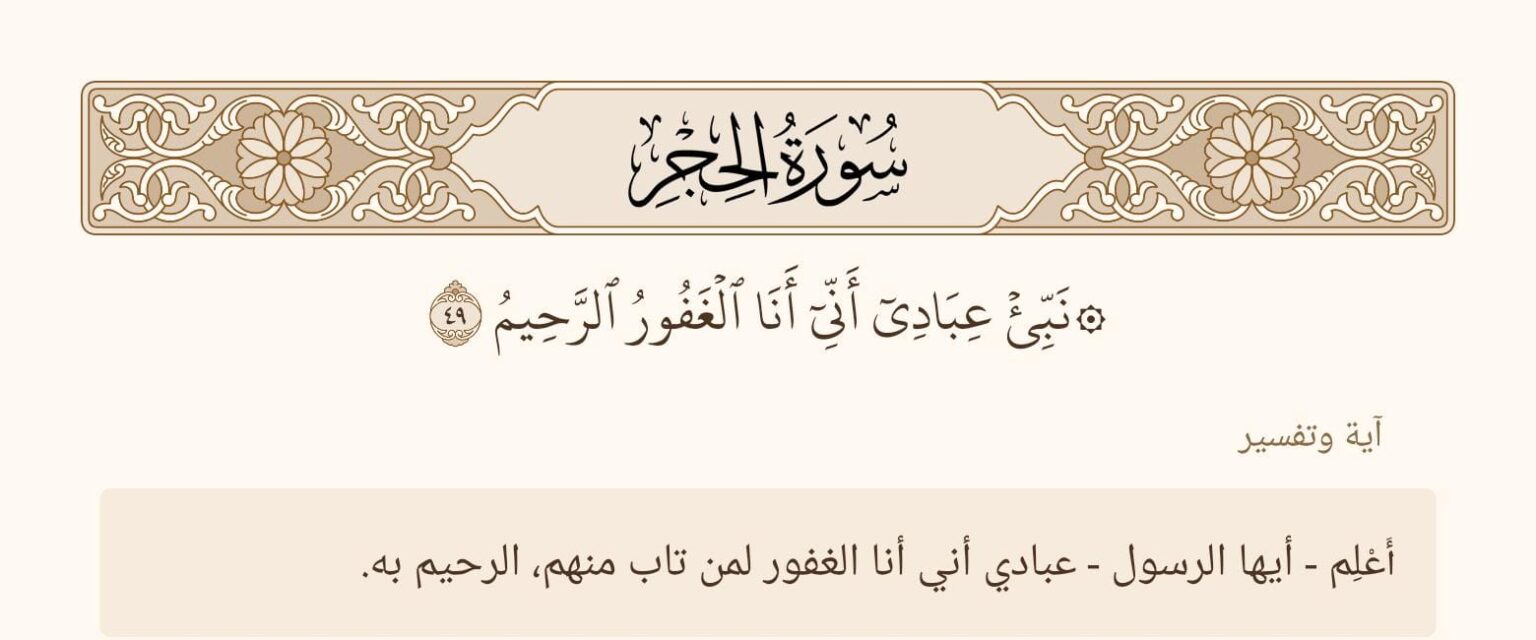 سُورَةُ الحِجْرِ
۞نَبِّئۡ عِبَادِيٓ أَنِّيٓ أَنَا ٱلۡغَفُورُ ٱلرَّحِيمُ ٤٩
آية وتفسير
أَعْلِم - أيها الرسول - عبادي أني أنا الغفور لمن تاب منهم، الرحيم به.